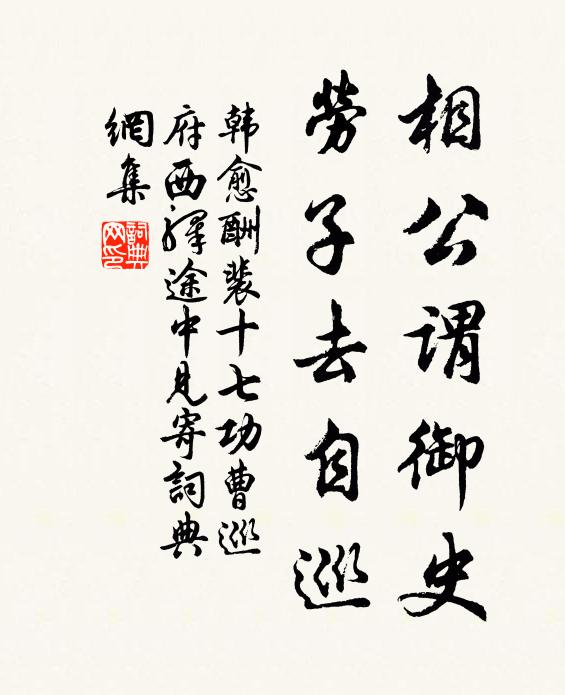 相公謂御史
勞子去自巡
韩愈酬裴十七功曹巡
府西驛途中見寄詞典
網集
詞典网印